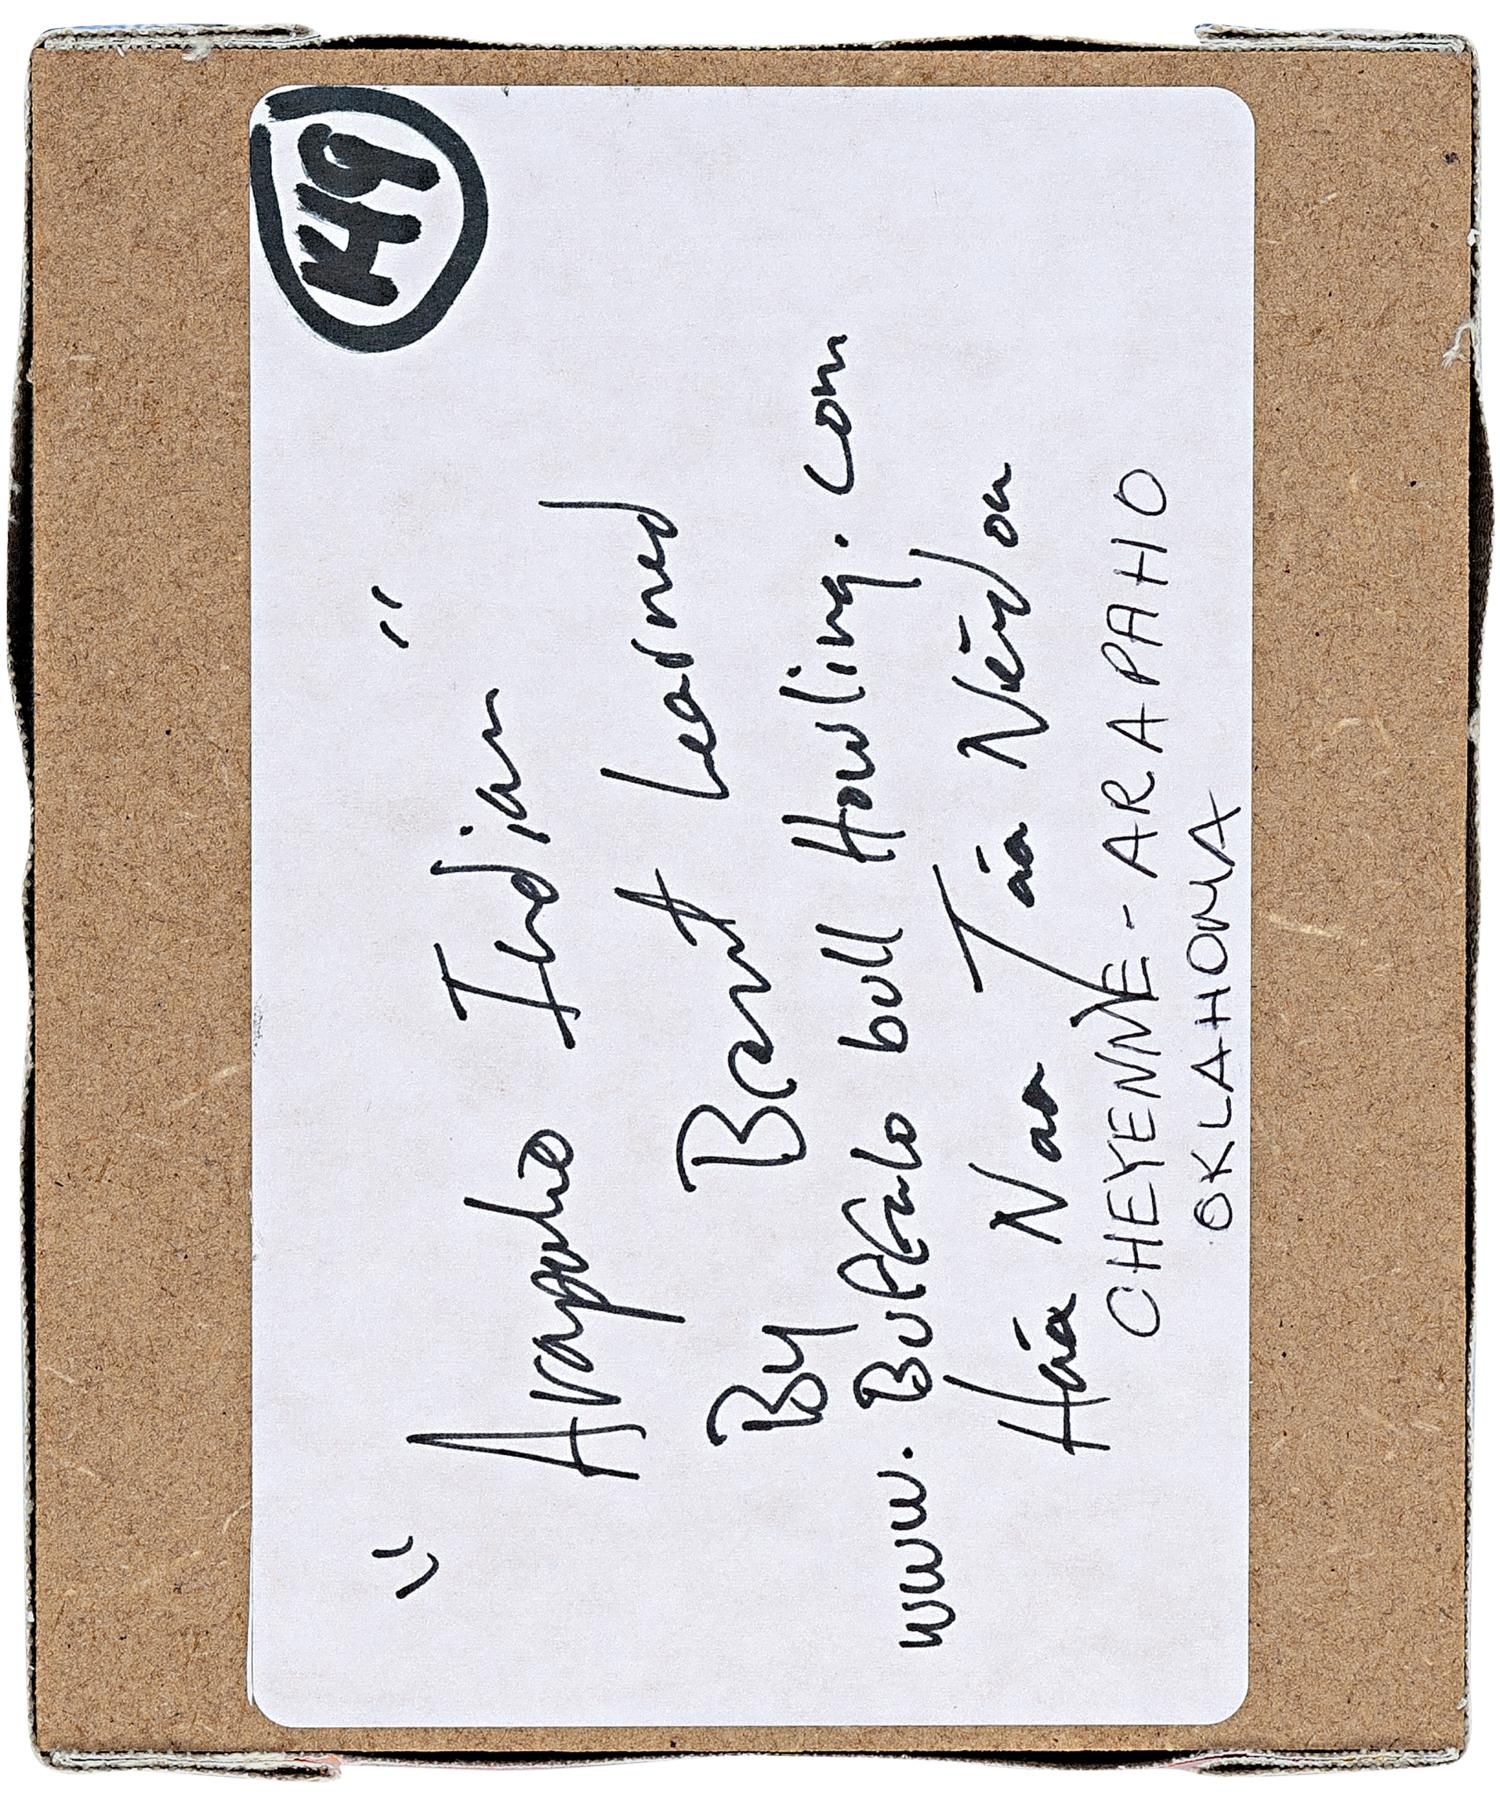 149
" Arapaho Indian "
By Brent Learned
www. Buffalo bull Howling. com
Háa Naa Táa
CHEYENNE-ARAPAHO
OKLAHOMA